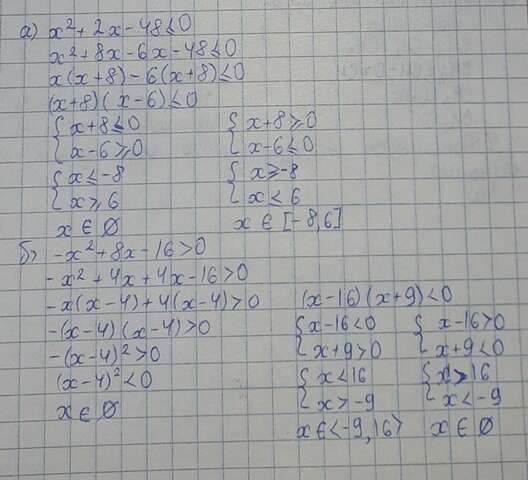 а) x² + 2x - 48 ≤ 0
x² + 8x - 6x - 48 ≤ 0
x(x+8) - 6(x+8) ≤ 0
(x+8)(x-6) ≤ 0
{ x+8 ≤ 0 { x+8 ≥ 0
{ x-6 ≥ 0 { x-6 ≤ 0
{ x ≤ -8 { x ≥ -8
{ x ≥ 6 { x < 6
x ∈ ∅ x ∈ [-8,6]
б) -x² + 8x - 16 > 0
-x² + 4x + 4x - 16 > 0
-x(x-4) + 4(x-4) > 0
-(x-4)(x-4) > 0
-(x-4)² > 0
(x-4)² < 0
x ∈ ∅
(x-16)(x+9) < 0
{ x-16 < 0 { x-16 > 0
{ x+9 > 0 { x+9 < 0
{ x < 16 { x > 16
{ x > -9 { x < -9
x ∈ <-9, 16> x ∈ ∅